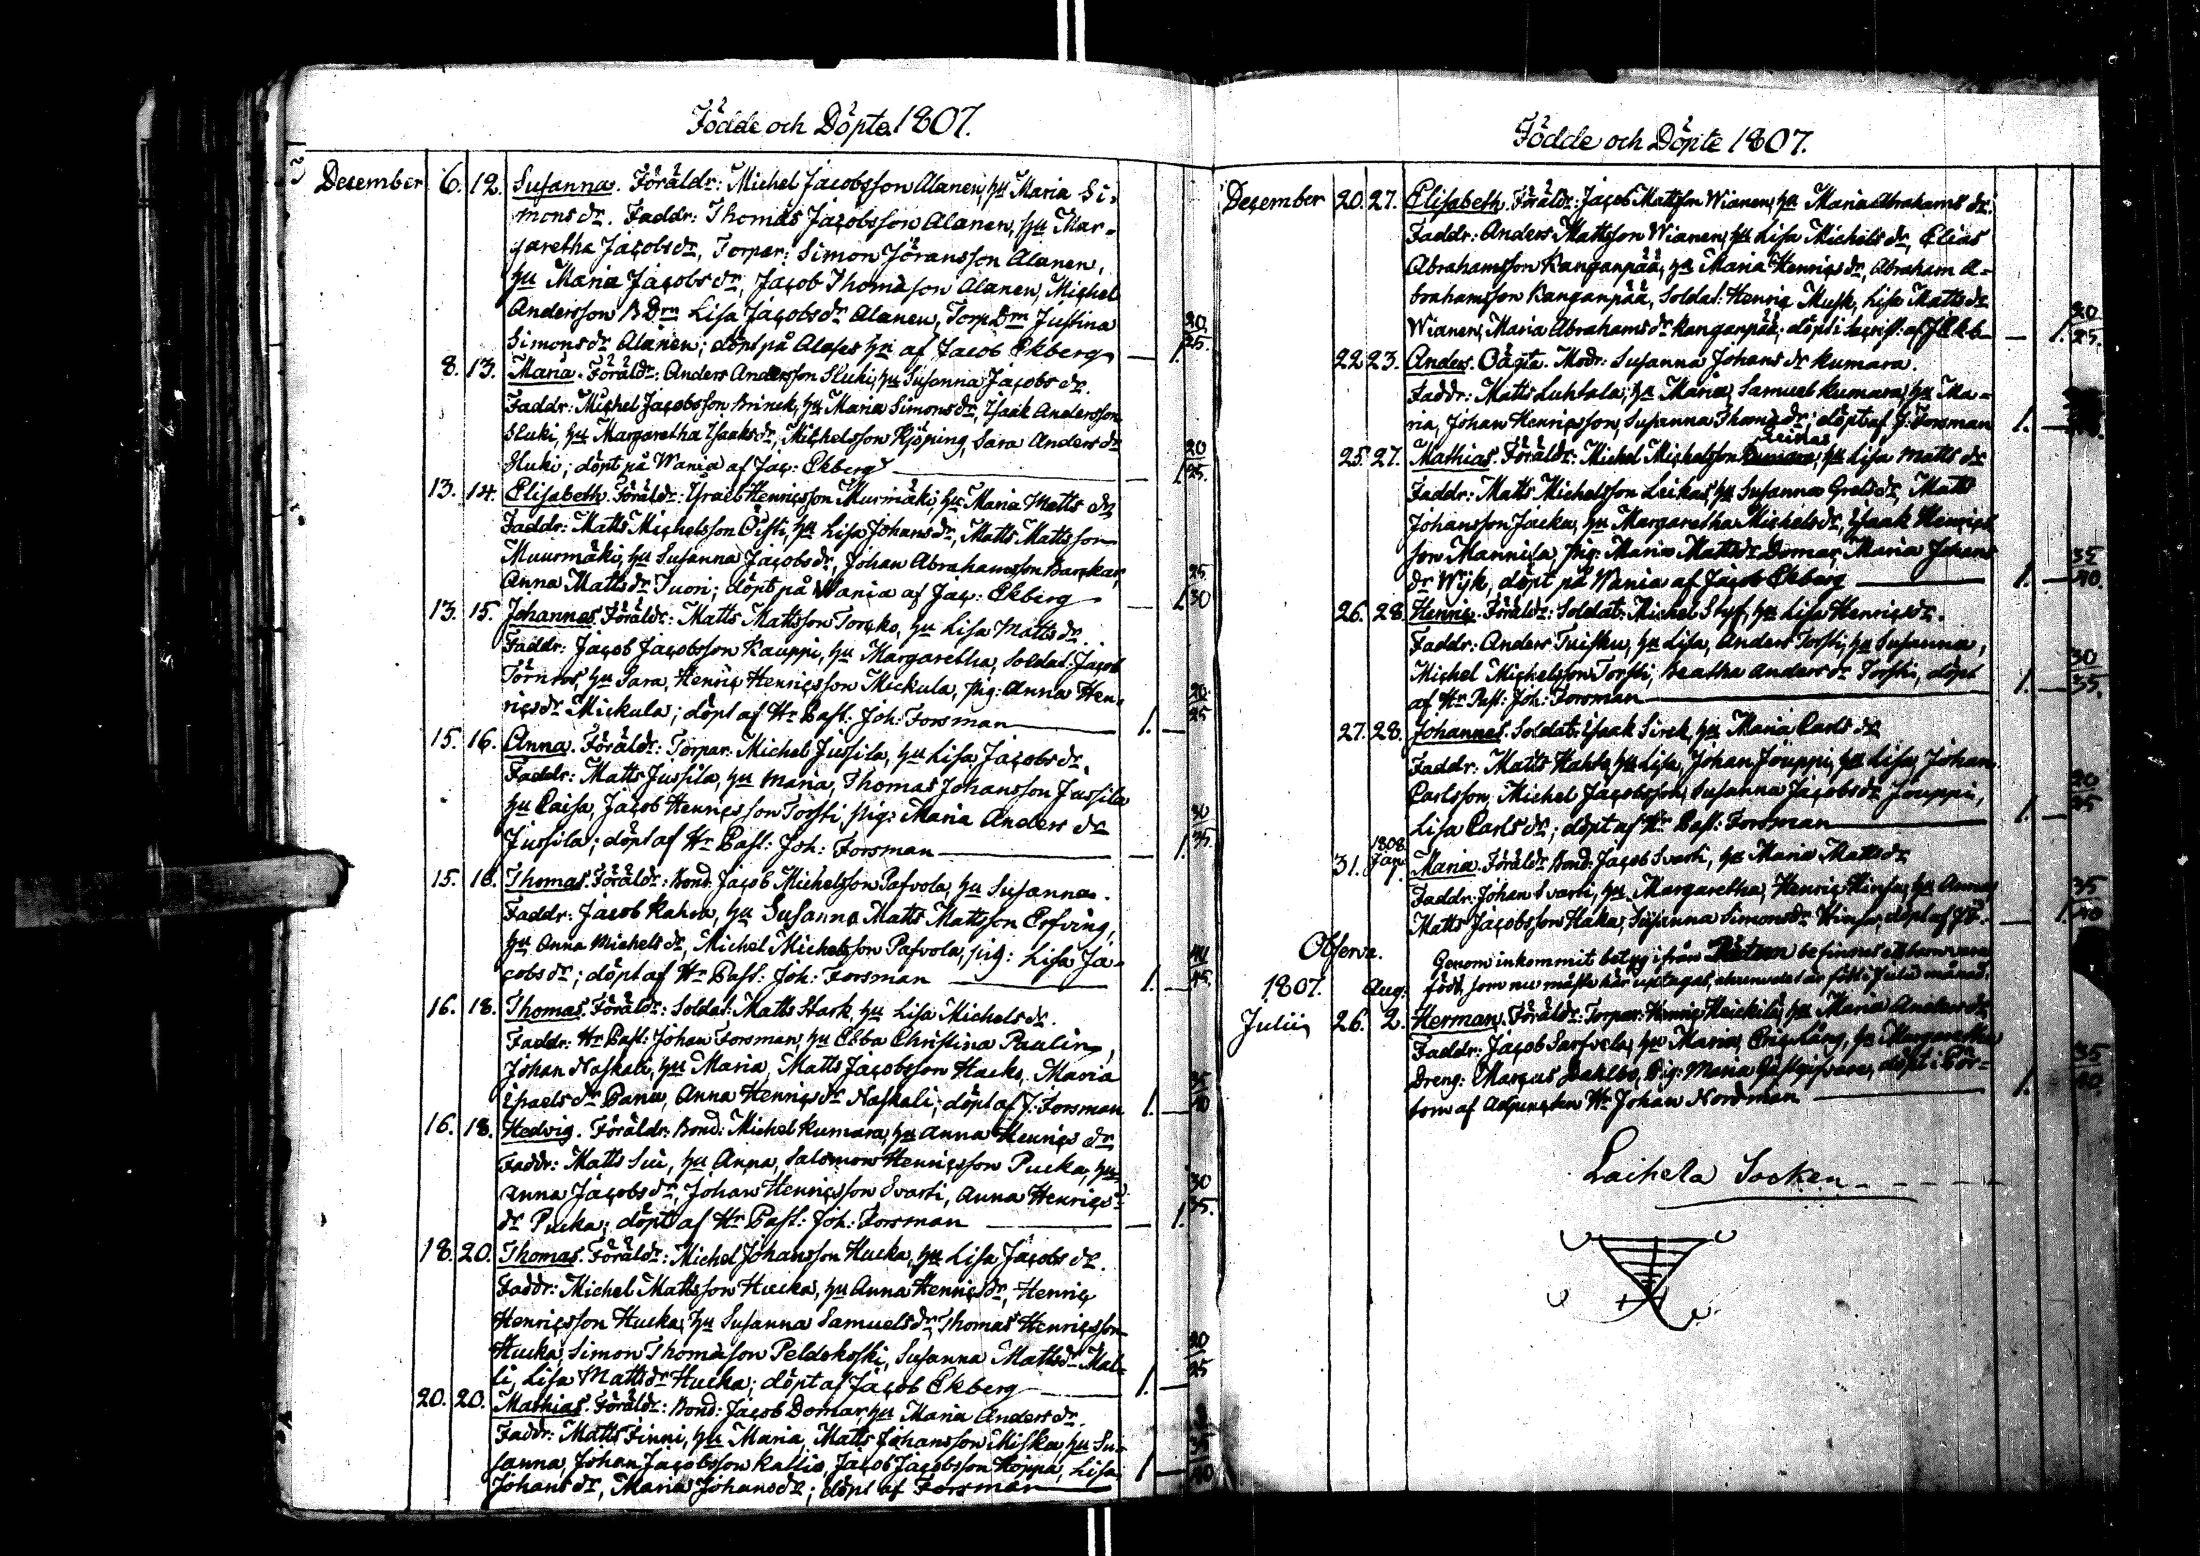 Födde och Döpte 1807.
December 6. 12. Susanna. Föräldr: Michel Jacobsson Alanen, hu Maria Si-
mons dr. Faddr: Thomas Jacobsson Alanen, hu Mar-
garetha Jacobs dr, Torpar: Simon Jöransson Alanen,
hu Maria Jacobs dr, Jacob Thomasson Alanen, Michel
Andersson BDrn Lisa Jacobs dr Alanen, Torp Drn Justina
Simons dr Alanen; döpt på af Jacob Ekberg — 1. 20/25.
8. 13. Maria. Föräldr: Anders Andersson Sluki, hu Susanna Jacobs dr.
Faddr: Michel Jacobsson Brinck, hu Maria Simons dr, Isaak Andersson
Sluki, hu Margaretha Isaaks dr, Michelsson Kjöping, Sara Anders dr
Sluki; döpt på Wania af Jac: Ekberg — 1. 20/25.
13. 14. Elisabeth. Föräldr: Israel Henricsson Murmäki, hu Maria Matts dr,
Faddr: Matts Michelsson Öisti, hu Lisa Johans dr, Matts Mattsson
Muurmäki, hu Susanna Jacobs dr, Johan Abrahamsson Barckar,
Anna Matts dr Tuori; döpt på Wania af Jac: Ekberg — 1. 25/30
13. 15. Johannes. Föräldr: Matts Mattsson Torcko, hu Lisa Matts dr.
Faddr: Jacob Jacobsson Kauppi, hu Margaretha, Soldat: Jacob
Törnros, hu Sara, Henric Henricsson Mickula, pig: Anna Hen-
rics dr Mickula; döpt af Hr Past: Joh: Forsman — 1. 20/25
15. 16. Anna. Föräldr: Torpar: Michel Jussila, hu Lisa Jacobs dr.
Faddr: Matts Jussila, hu Maria, Thomas Johansson Jussila
hu Caisa, Jacob Henricsson Torsti, pig: Maria Anders dr
Jussila; döpt af Hr Past: Joh: Forsman — 1. 30/35.
15. 16. Thomas. Föräldr: Bond: Jacob Michelsson Pafvola, hu Susanna.
Faddr: Jacob Kahra, hu Susanna Matts Mattsson Erfving,
hu Anna Michels dr, Michel Michelsson Pafvola, pig: Lisa Ja-
cobs dr; döpt af Hr Past: Joh: Forsman — 1. 40/45.
16. 18. Thomas. Föräldr: Soldat: Matts Stark, hu Lisa Michels dr.
Faddr: Hr Past: Johan Forsman, hu Ebba Christina Paulin,
Johan Naskali, hu Maria, Matts Jacobsson Hacko, Maria
Israels dr Panu, Anna Henrics dr Naskali; döpt af J: Forsman 1. 35/40
16. 18. Hedvig. Föräldr: Bond: Michel Kumara, hu Anna Henrics dr,
Faddr: Matts Sui, hu Anna, Salomon Henricsson Pucka, hu
Anna Jacobs dr, Johan Henricsson Svarti, Anna Henrics
dr Pucka; döpt af Hr Past: Joh: Forsman — 1. 30/35.
18. 20. Thomas. Föräldr: Michel Johansson Hucka, hu Lisa Jacobs dr.
Faddr: Michel Mattsson Hucka, hu Anna Henrics dr, Henric
Henricsson Hucka, hu Susanna Samuels dr, Thomas Henricsson
Hucka, Simon Thomasson Peldokoski, Susanna Matts dr Mal-
li, Lisa Matts dr Hucka; döpt af Jacob Ekberg — 1. 20/25
20. 20. Mathias. Föräldr: Bond: Jacob Domar, hu Maria Anders dr.
Faddr: Matts Finni, hu Maria, Matts Johansson Miska, hu Su-
sanna, Johan Jacobsson Kallio, Jacob Jacobsson Hoppa, Lisa
Johans dr, Maria Johans dr; döpt af Forsman 1. 35/40
Födde och Döpte 1807.
December 20. 27. Elisabeth. Föräldr: Jacob Mattsson Wianen, hu Maria Abrahams dr.
Faddr: Anders Mattsson Wianen, hu Lisa Michels dr, Elias
Abrahamsson Kanganpää, hu Maria Henrics dr, Abraham A-
brahamsson Kanganpää, Soldat: Henric Musk, Lisa Matts dr
Wianen, Maria Abrahams dr Kanganpää; döpt i af J Ekb — 1. 20/25.
22. 23. Anders. Oägta. Modr: Susanna Johans dr Kumara.
Faddr: Matts Luhtala, hu Maria, Samuel Kumara, hu Ma-
ria, Johan Henricsson, Susanna Thomas dr; döpt af J: Forsman 1.
25. 27. Mathias. Föräldr: Michel Michelsson Leikas, hu Lisa Matts dr
Faddr: Matts Michelsson Leikas, hu Susanna Grels dr, Matts
Johansson Jacka, hu Margaretha Michels dr, Isaak Henrics
son Mannila, pig: Maria Matts dr Domar, Maria Johans
dr Wijk, döpt på Wania af Jacob Ekberg — 1. 35/40.
26. 28. Henric. Föräldr: Soldat: Michel Styf, hu Lisa Henrics dr.
Faddr: Anders Tuisku, hu Lisa, Anders Torsti, hu Susanna,
Michel Michelsson Torsti, Beatha Anders dr Torsti, döpt
af Hr Past: Joh: Forsman — 1. 30/35.
27. 28. Johannes. Soldat: Isaak Sirck, hu Maria Carls dr
Faddr: Matts Hahto, hu Lisa, Johan Jouppi, hu Lisa, Johan
Carlsson, Michel Jacobsson, Susanna Jacobs dr Jouppi,
Lisa Carls dr; döpt af Hr Past: Forsman — 1. 20/25
31. 1808. Jan. 1. Maria. Föräldr Bond: Jacob Svarti, hu Maria Matts dr
Faddr: Johan Svarti, hu Margaretha, Henric Hinsa, hu Anna,
Matts Jacobsson Haka, Susanna Simons dr Hinsa, döpt af — 1. 35/40
Observ. Genom inkommit betyg ifrån befinnes ett barn vara
1807. Aug: födt, som nu måste här uptagas, ehuruväl är födt i Julii månad.
Julii 26. 2. Herman. Föräldr: Torpar: Henric Heickilä, hu Maria Anders dr
Faddr: Jacob Sarfvela, hu Maria, Eric Lång, hu Margaretha
Dreng: Marcus Dahlbo, Pig: Maria Gästgifvars, döpt i Pör-
tom af Adjuncten Hr Johan Nordman — 1. 35/40.
Laihela Socken